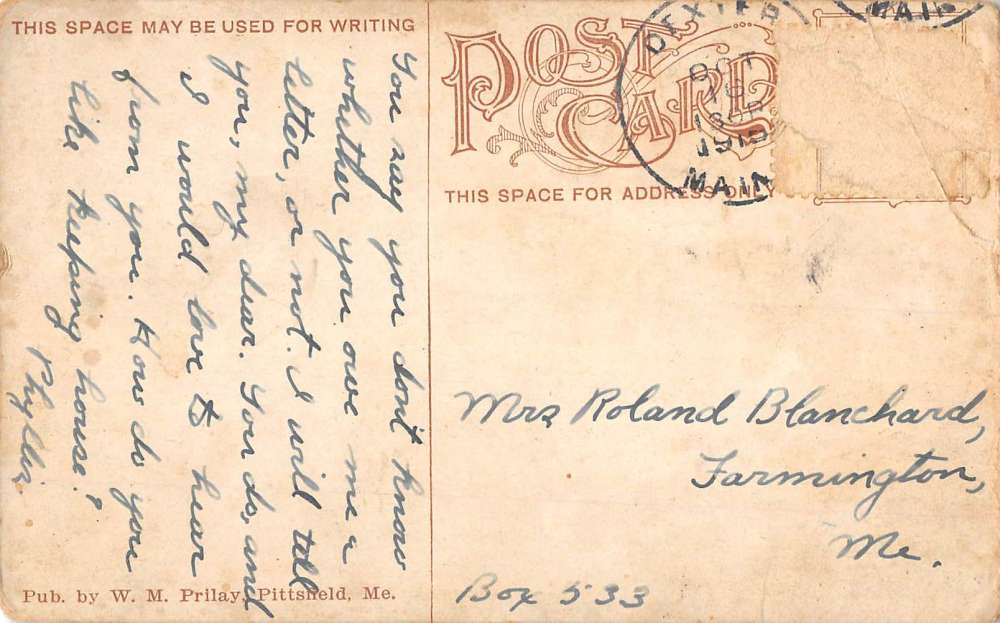 THIS SPACE MAY BE USED FOR WRITING
You say you don't know
whether you owe me a
letter, or not. I will tell
you, my dear. You do, and
I would love to hear
from you. How do you
like keeping house?
Phyllis.
Pub. by W. M. Prilay, Pittsfield, Me.
POST CARD
THIS SPACE FOR ADDRESS ONLY
DEXTER
OCT
MAIN
MAIN
Mrs Roland Blanchard,
Farmington,
Me.
Box 533